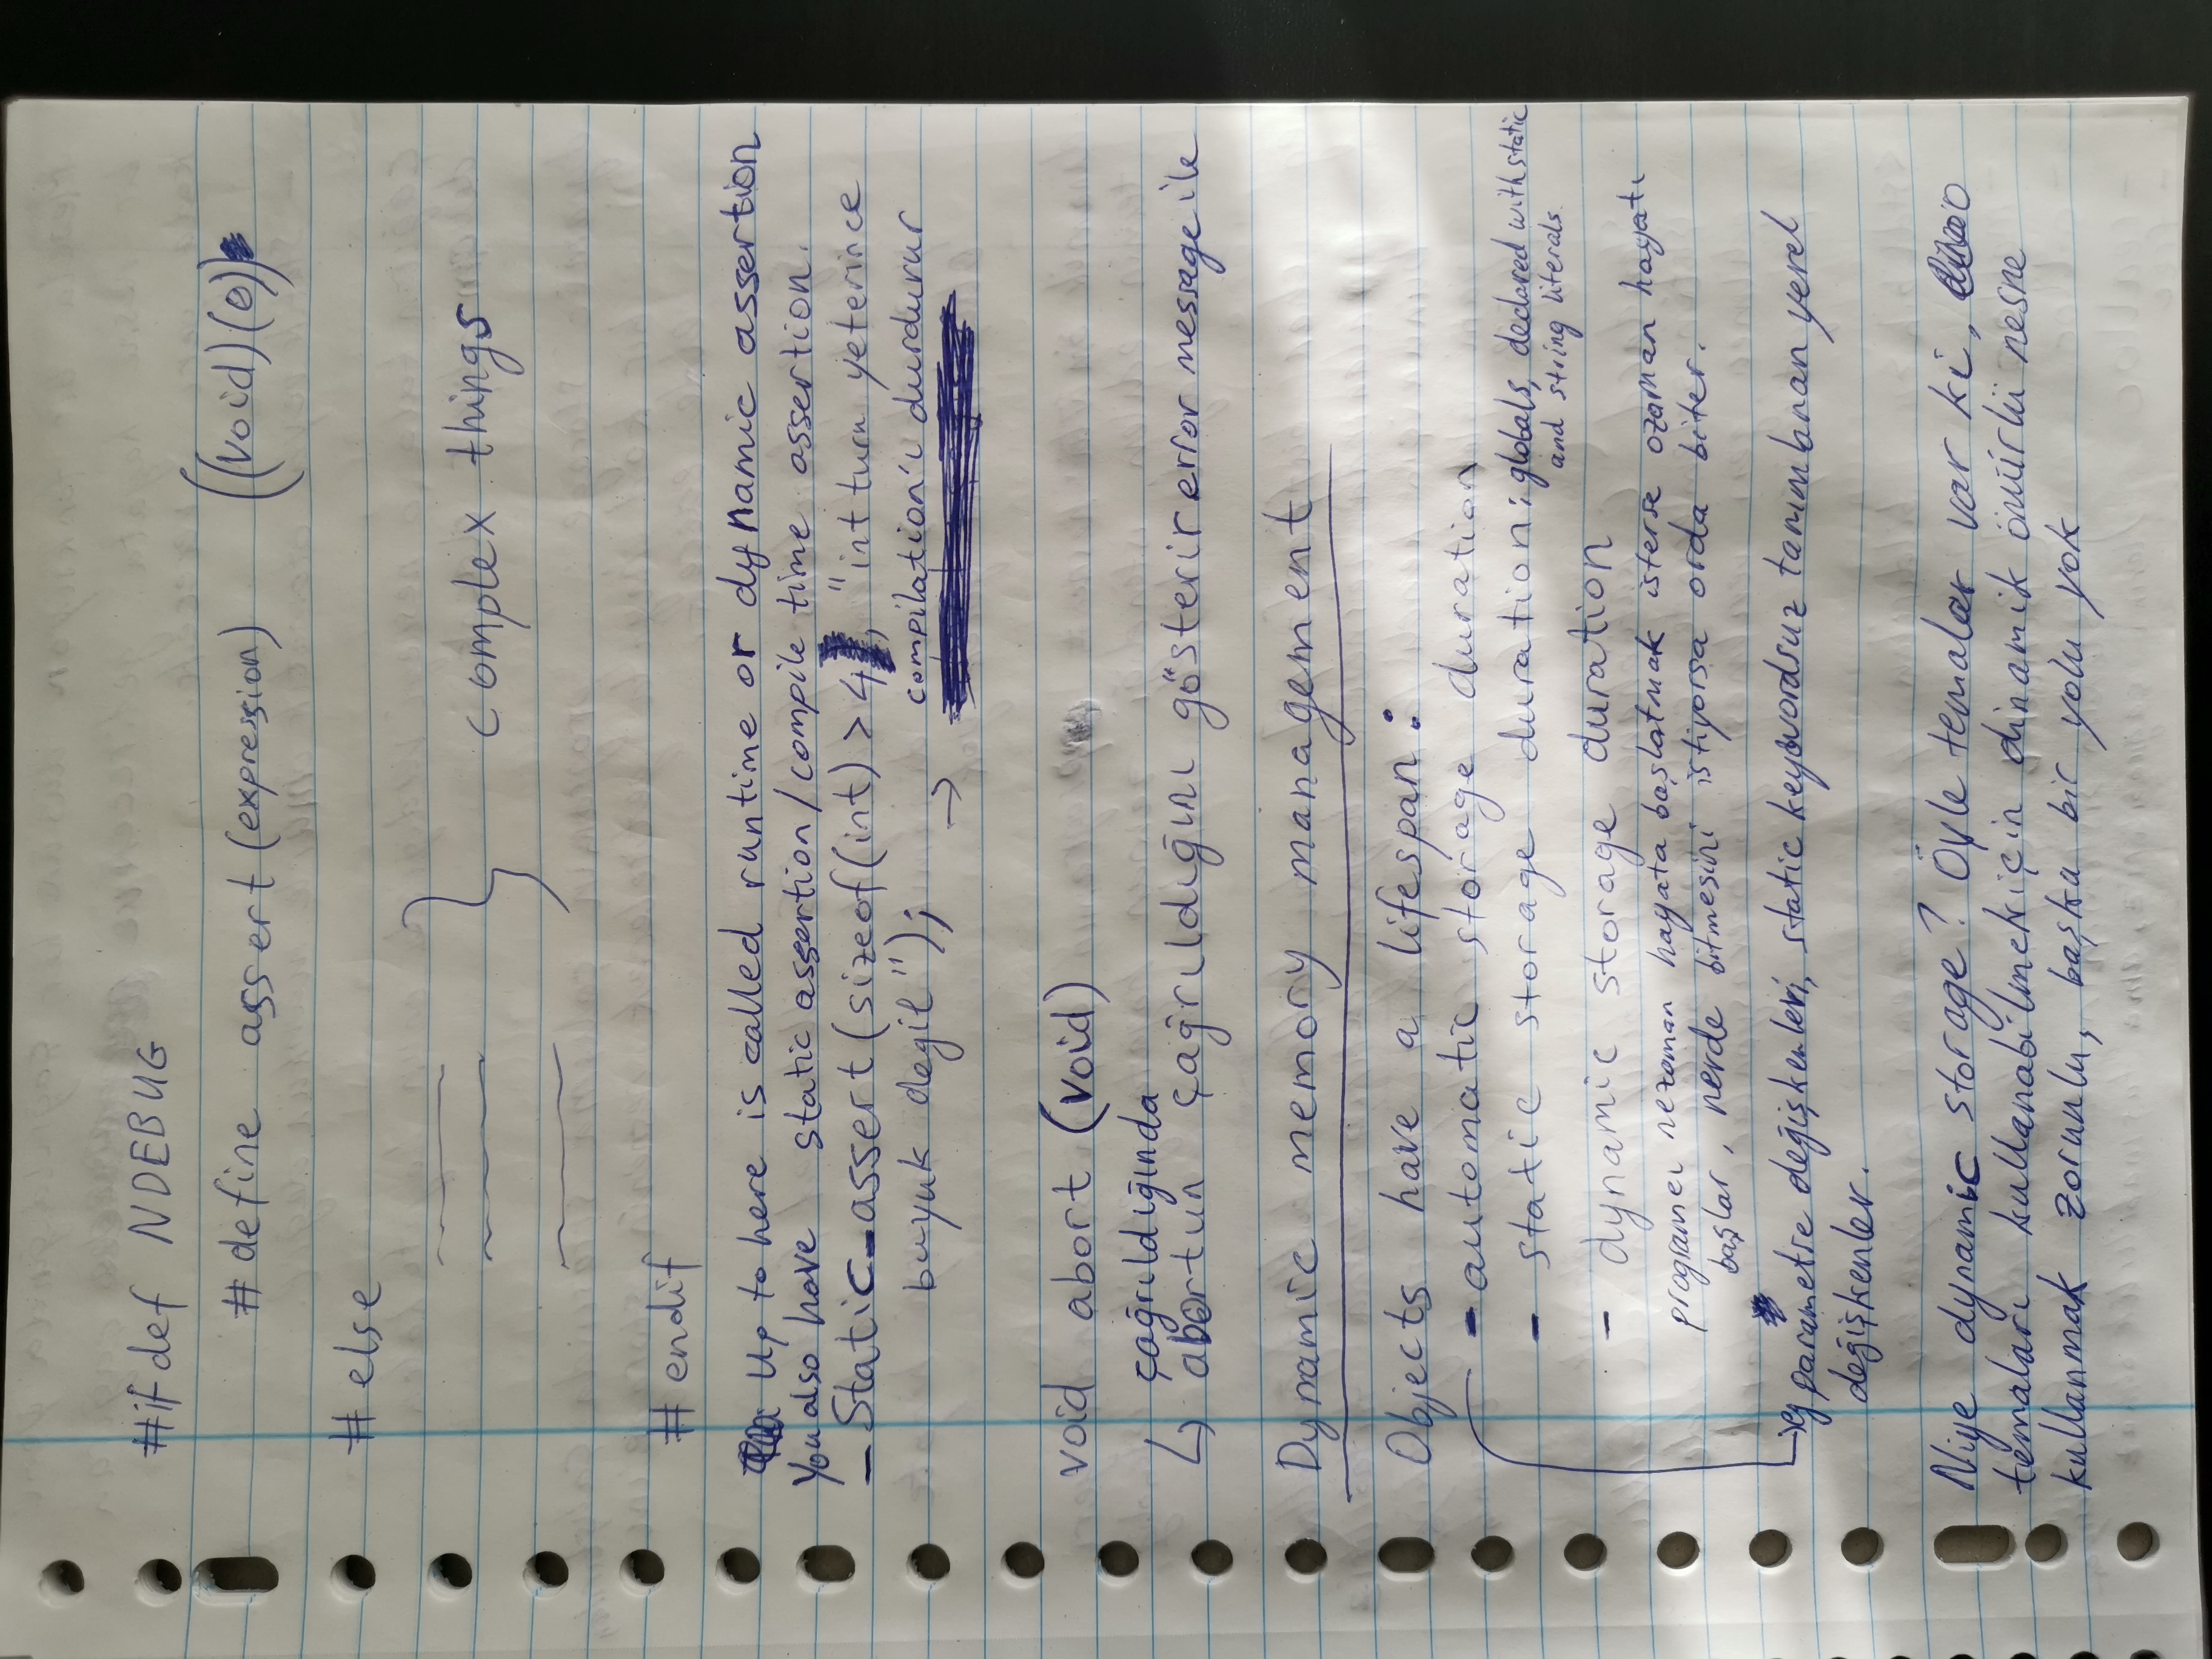 #ifdef NDEBUG
# define assert (expression) ((void)(0))
# else
complex things
# endif
Up to here is called runtime or dynamic assertion
You also have static assertion/compile time assertion.
_Static_assert(sizeof(int) > 4, "int turu yeterince
buyuk degil"); → compilation'ı durdurur
void abort (void)
çağrıldığında
↳ abortun çağrıldığını gösterir error message ile
Dynamic memory management
Objects have a lifespan:
- automatic storage duration
- static storage duration: globals, declared with static
and string literals.
- dynamic storage duration
programcı nezaman hayata başlatmak isterse ozaman hayatı
başlar, nerde bitmesini istiyorsa orda biter.
eg parametre değişkenleri, static keywordsuz tanımlanan yerel
değişkenler.
Niye dynamic storage? Öyle temalar var ki, o
temaları kullanabilmek için dinamik ömürlü nesne
kullanmak zorunlu, başka bir yolu yok